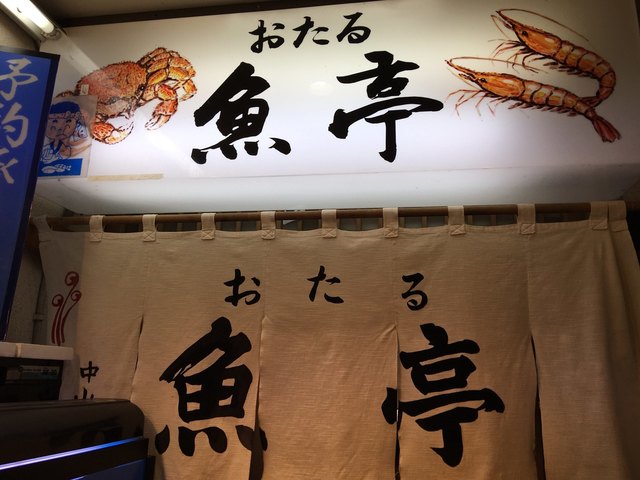 おたる
魚亭
予約
おたる
魚亭
中